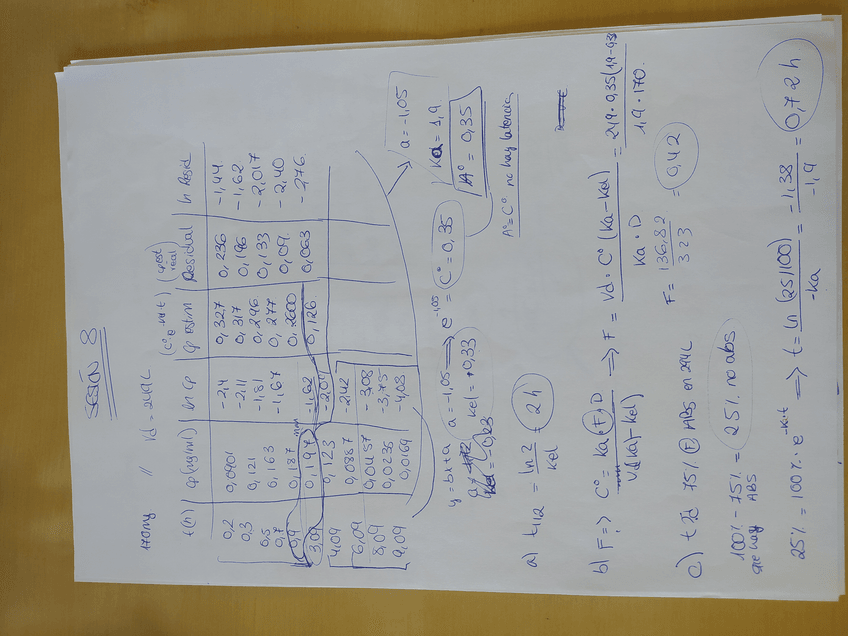 SESIÓN 8
170mg // Vd = 249L
t(h) | Cp(mg/ml) | ln Cp | (C°·e^-kel·t) Cp estim | (cpest-real) Residual | ln Resid
0,2 | 0,0901 | -2,4 | 0,327 | 0,236 | -1,44
0,3 | 0,121 | -2,11 | 0,317 | 0,196 | -1,62
0,5 | 0,163 | -1,81 | 0,296 | 0,133 | -2,017
0,7 | 0,187 | -1,67 | 0,277 | 0,09 | -2,40
0,9 | 0,197 | -1,62 | 0,2600 | 0,063 | -2,76
3,09 | 0,123 | -2,09 | 0,126
4,09 | 0,0887 | -2,42
6,09 | 0,0457 | -3,08
8,09 | 0,0235 | -3,75
9,09 | 0,0169 | -4,08
y = bx+a a = -1,05 ⟹ e^-1,05 = C° = 0,35
kel = +0,33
a = -1,05
Ka = 1,9
A° = 0,35
A°=C° no hay latencia
a) t1/2 = ln 2 / kel = 2h
b) F => C° = ka·F·D / Vd(ka-kel) => F = Vd·C° (Ka-Kel) / Ka·D = 249·0,35(1,9-0,33) / 1,9·170
F = 136,82 / 323 = 0,42
c) t 75% F ABS en 294L
100% - 75% = 25% no abs
ABS
25% = 100%·e^-ka·t => t = ln (25/100) / -Ka = -1,38 / -1,9 = 0,72h